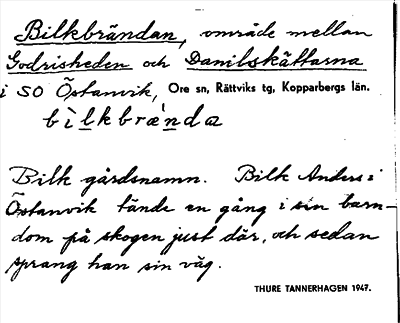 Bilkbrändan, område mellan
Godrisheden och Danilskättarna
i SO Östanvik, Ore sn, Rättviks tg, Kopparbergs län.
bìlkbrænda
Bilk gårdsnamn. Bilk Anders i
Östanvik tände en gång i sin barn-
dom på skogen just där, och sedan
sprang han sin väg.
THURE TANNERHAGEN 1947.